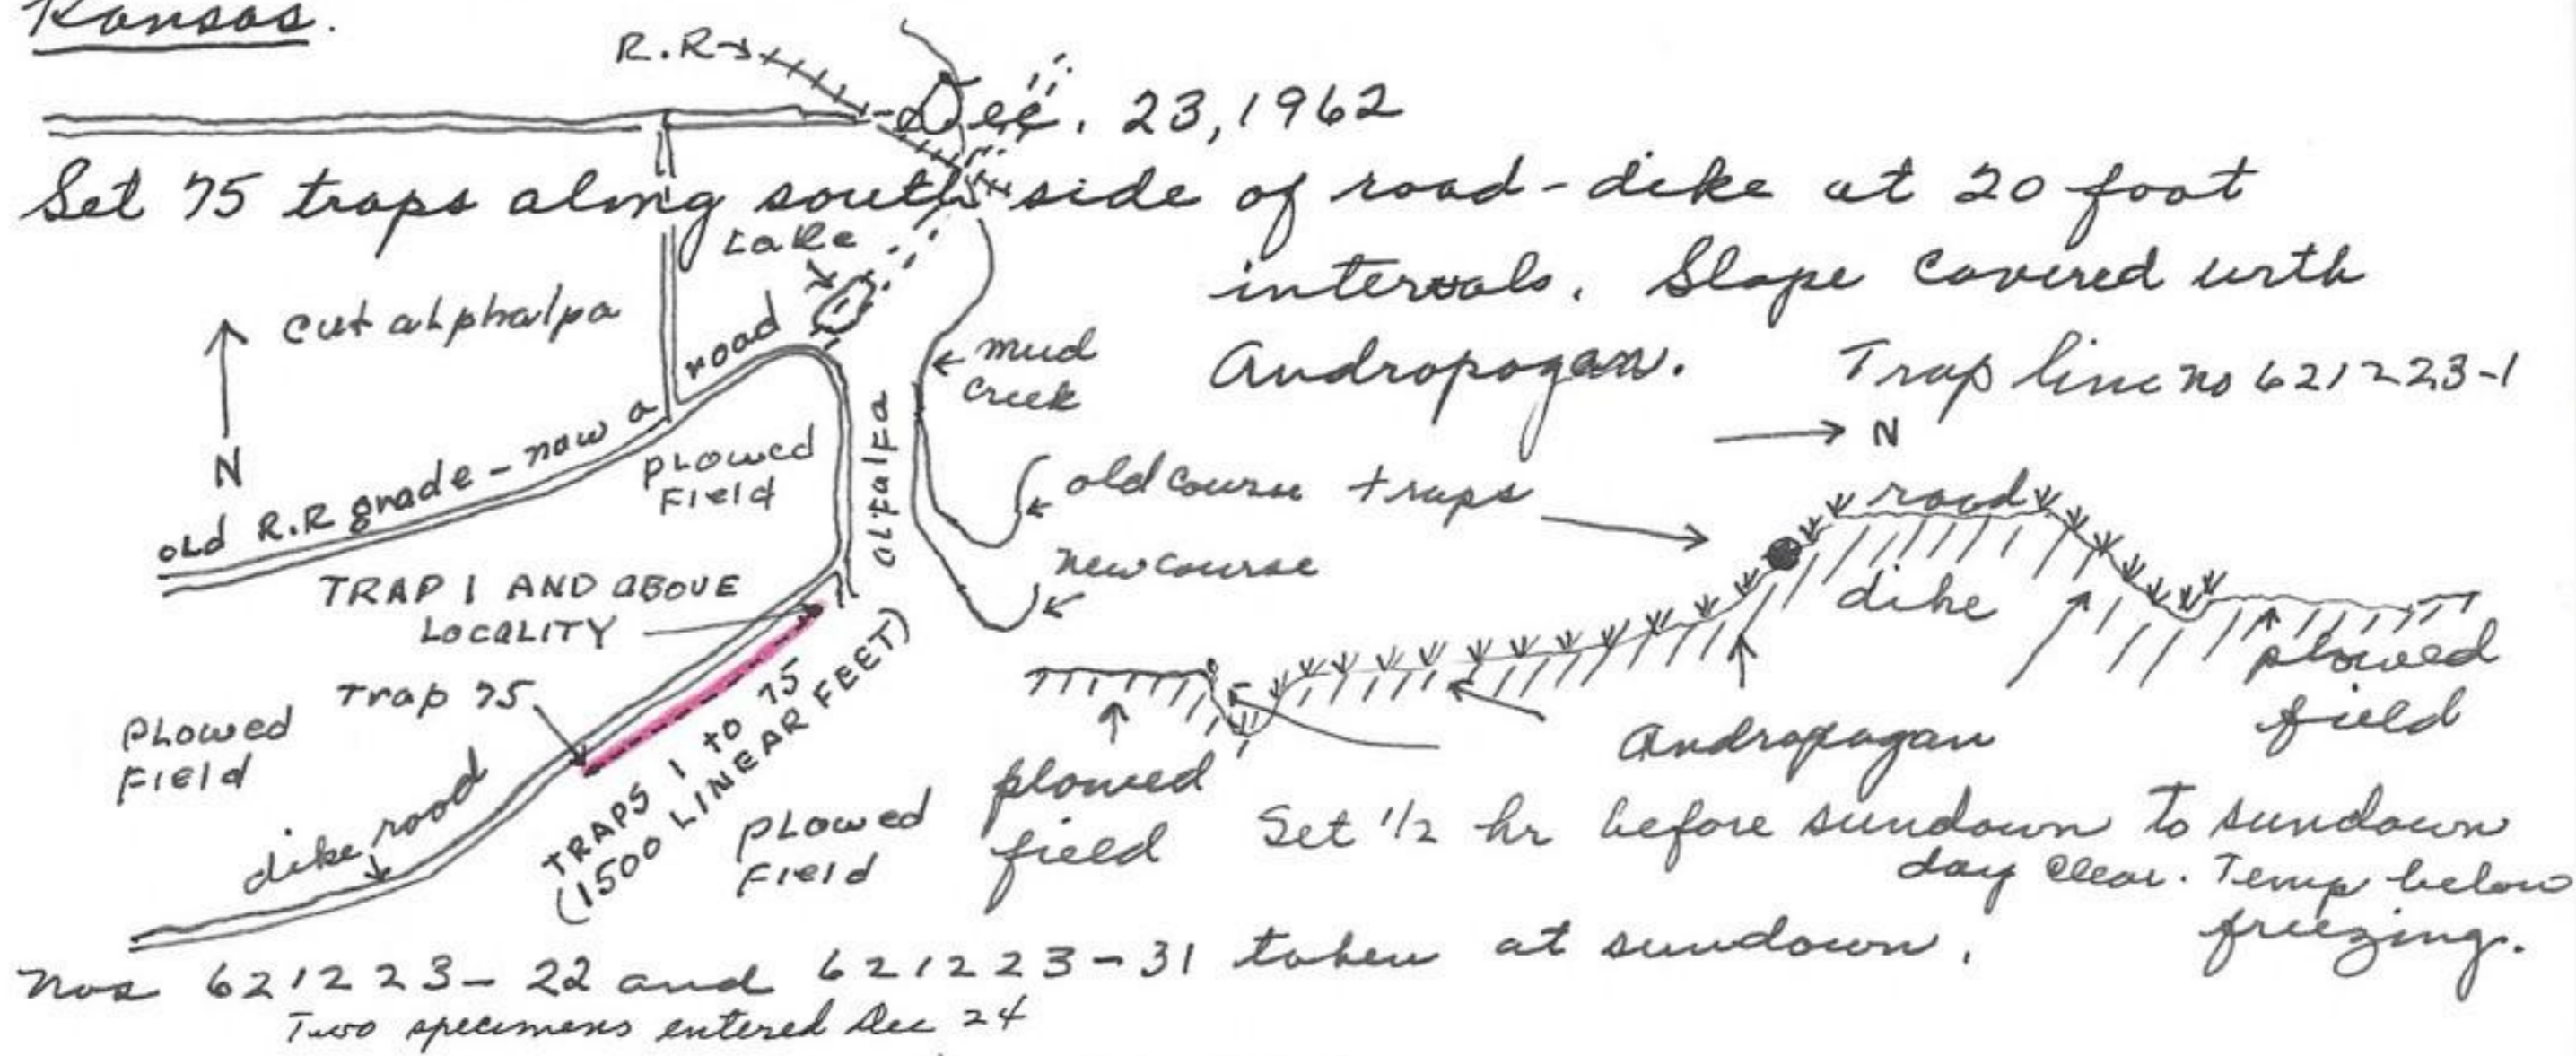 Kansas.
R.R
Dec. 23, 1962
Set 75 traps along south side of road-dike at 20 foot
intervals. Slope covered with
Andropogan. Trap line no 621223-1
Lake
cut alphalpa
N
old R.R grade - now a road
mud
creek
PLOWED
Field
alfalfa
old course
new course
traps
N
road
dike
TRAP 1 AND ABOVE
LOCALITY
Trap 75
PLOWED
Field
dike road
TRAPS 1 to 75
(1500 LINEAR FEET)
PLOWED
Field
plowed
field
Andropogan
plowed
field
Set 1/2 hr before sundown to sundown
day clear. Temp below
freezing.
Nos 621223-22 and 621223-31 taken at sundown.
Two specimens entered Dec 24